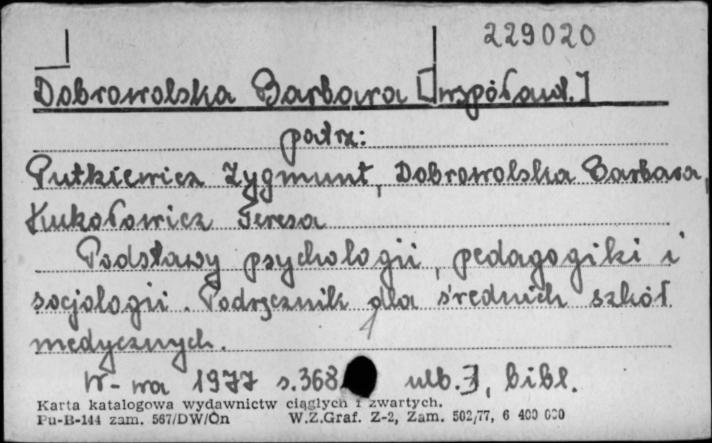 229020
Dobrowolska Barbara [współaut.]
patrz:
Putkiewicz Zygmunt, Dobrowolska Barbara,
Kukołowicz Teresa
Podstawy psychologii, pedagogiki i
socjologii. Podręcznik dla średnich szkół
medycznych.
W-wa 1977 s.368 ulb.3, bibl.
Karta katalogowa wydawnictw ciągłych i zwartych.
Pu-B-144 zam. 567/DW/On W.Z.Graf. Z-2, Zam. 502/77, 6 400 000